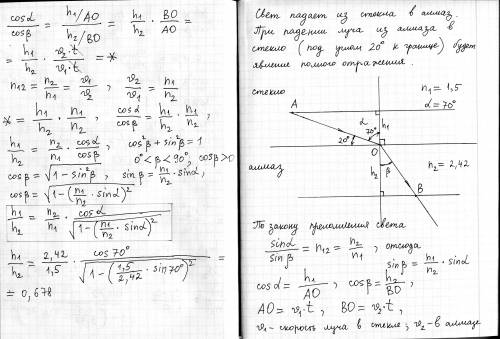 cosα/cosβ = (h₁/AO)/(h₂/BO) = h₁/h₂ · BO/AO =
= h₁/h₂ · (v₂·t)/(v₁·t) = *
n₁₂ = n₂/n₁ = v₁/v₂ , v₂/v₁ = n₁/n₂
* = h₁/h₂ · n₁/n₂ , cosα/cosβ = h₁/h₂ · n₁/n₂ ,
h₁/h₂ = n₂/n₁ · cosα/cosβ , cos²β + sin²β = 1
0° < β < 90°, cosβ > 0
cosβ = √(1 - sin²β) , sinβ = n₁/n₂ · sinα,
cosβ = √(1 - (n₁/n₂ · sinα)²)
h₁/h₂ = n₂/n₁ · cosα/√(1 - (n₁/n₂ · sinα)²)
h₁/h₂ = 2,42/1,5 · cos70°/√(1 - (1,5/2,42 · sin70°)²) =
= 0,678
Свет падает из стекла в алмаз.
При падении луча из алмаза в
стекло (под углом 20° к границе) будет
явление полного отражения.
стекло
n₁ = 1,5
α = 70°
A
α
70°
h₁
20°
O
алмаз
n₂ = 2,42
h₂
β
B
По закону преломления света
sinα/sinβ = n₁₂ = n₂/n₁ , отсюда
sinβ = n₁/n₂ · sinα
cosα = h₁/AO , cosβ = h₂/BO ,
AO = v₁·t , BO = v₂·t ,
v₁ - скорость луча в стекле, v₂ - в алмазе